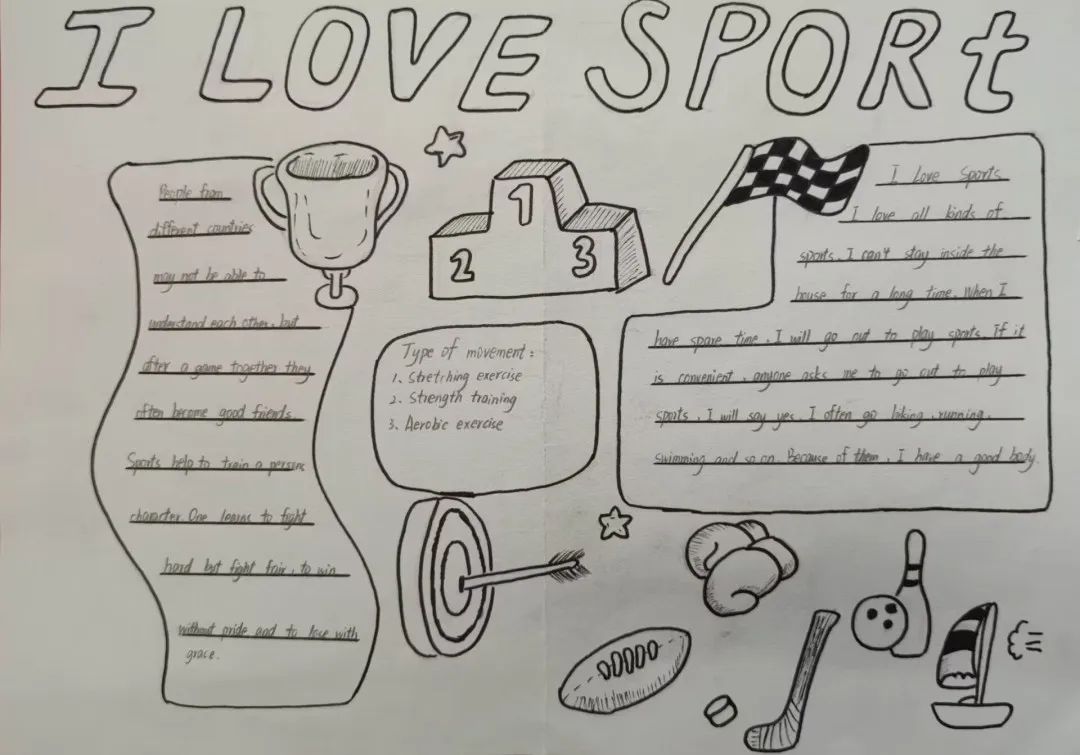 I LOVE SPORt
People from
different countries
may not be able to
understand each other, but
after a game together they
often become good friends.
Sports help to train a persons
character. One learns to fight
hard but fight fair, to win
without pride and to lose with
grace.
1
2
3
Type of movement:
1. Stretching exercise
2. Strength training
3. Aerobic exercise
I Love Sports
I love all kinds of
sports. I can't stay inside the
house for a long time. When I
have spare time, I will go out to play sports. If it
is convenient, anyone asks me to go out to play
sports, I will say yes. I often go hiking, running,
swimming and so on. Because of them, I have a good body.